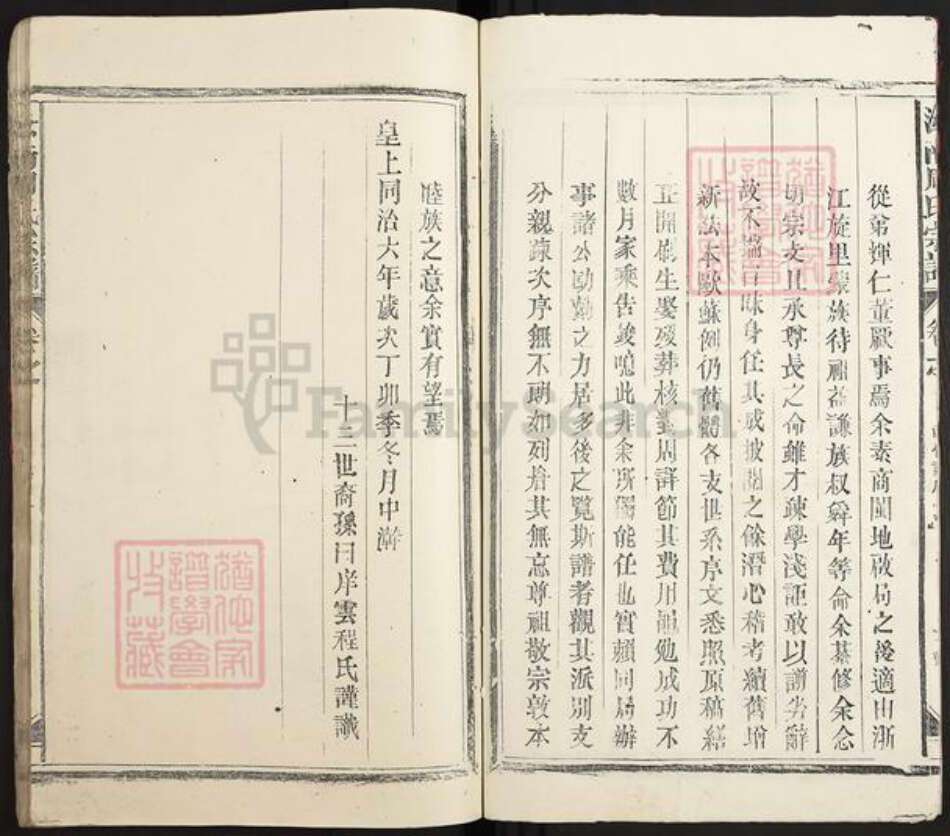 從弟輝仁董厥事焉余素商閩地啟局之後適由浙
江旋里蒙族待 益謙族叔舜年等命余纂修余念
切宗支且承尊長之命雖才疎學淺詎敢以譾劣辭
故不揣 昧身任其成披閱之餘潛心稽考續舊增
新法本歐蘇例仍舊譜各支世系序文悉照原稿繕
正開 生娶歿葬核對周詳節其費用黽勉成功不
數月家乘告竣噫此非余所獨能任也實賴同局辦
事諸公勷勤之力居多後之覽斯譜者觀其派別支
分親疎次序無不瞭如列眉其無忘尊祖敬宗敦本
睦族之意余實有望焉
皇上同治六年歲次丁卯季冬月中澣
十三世裔孫曰岸雲程氏謹識
周氏宗譜
卷之
FamilySearch